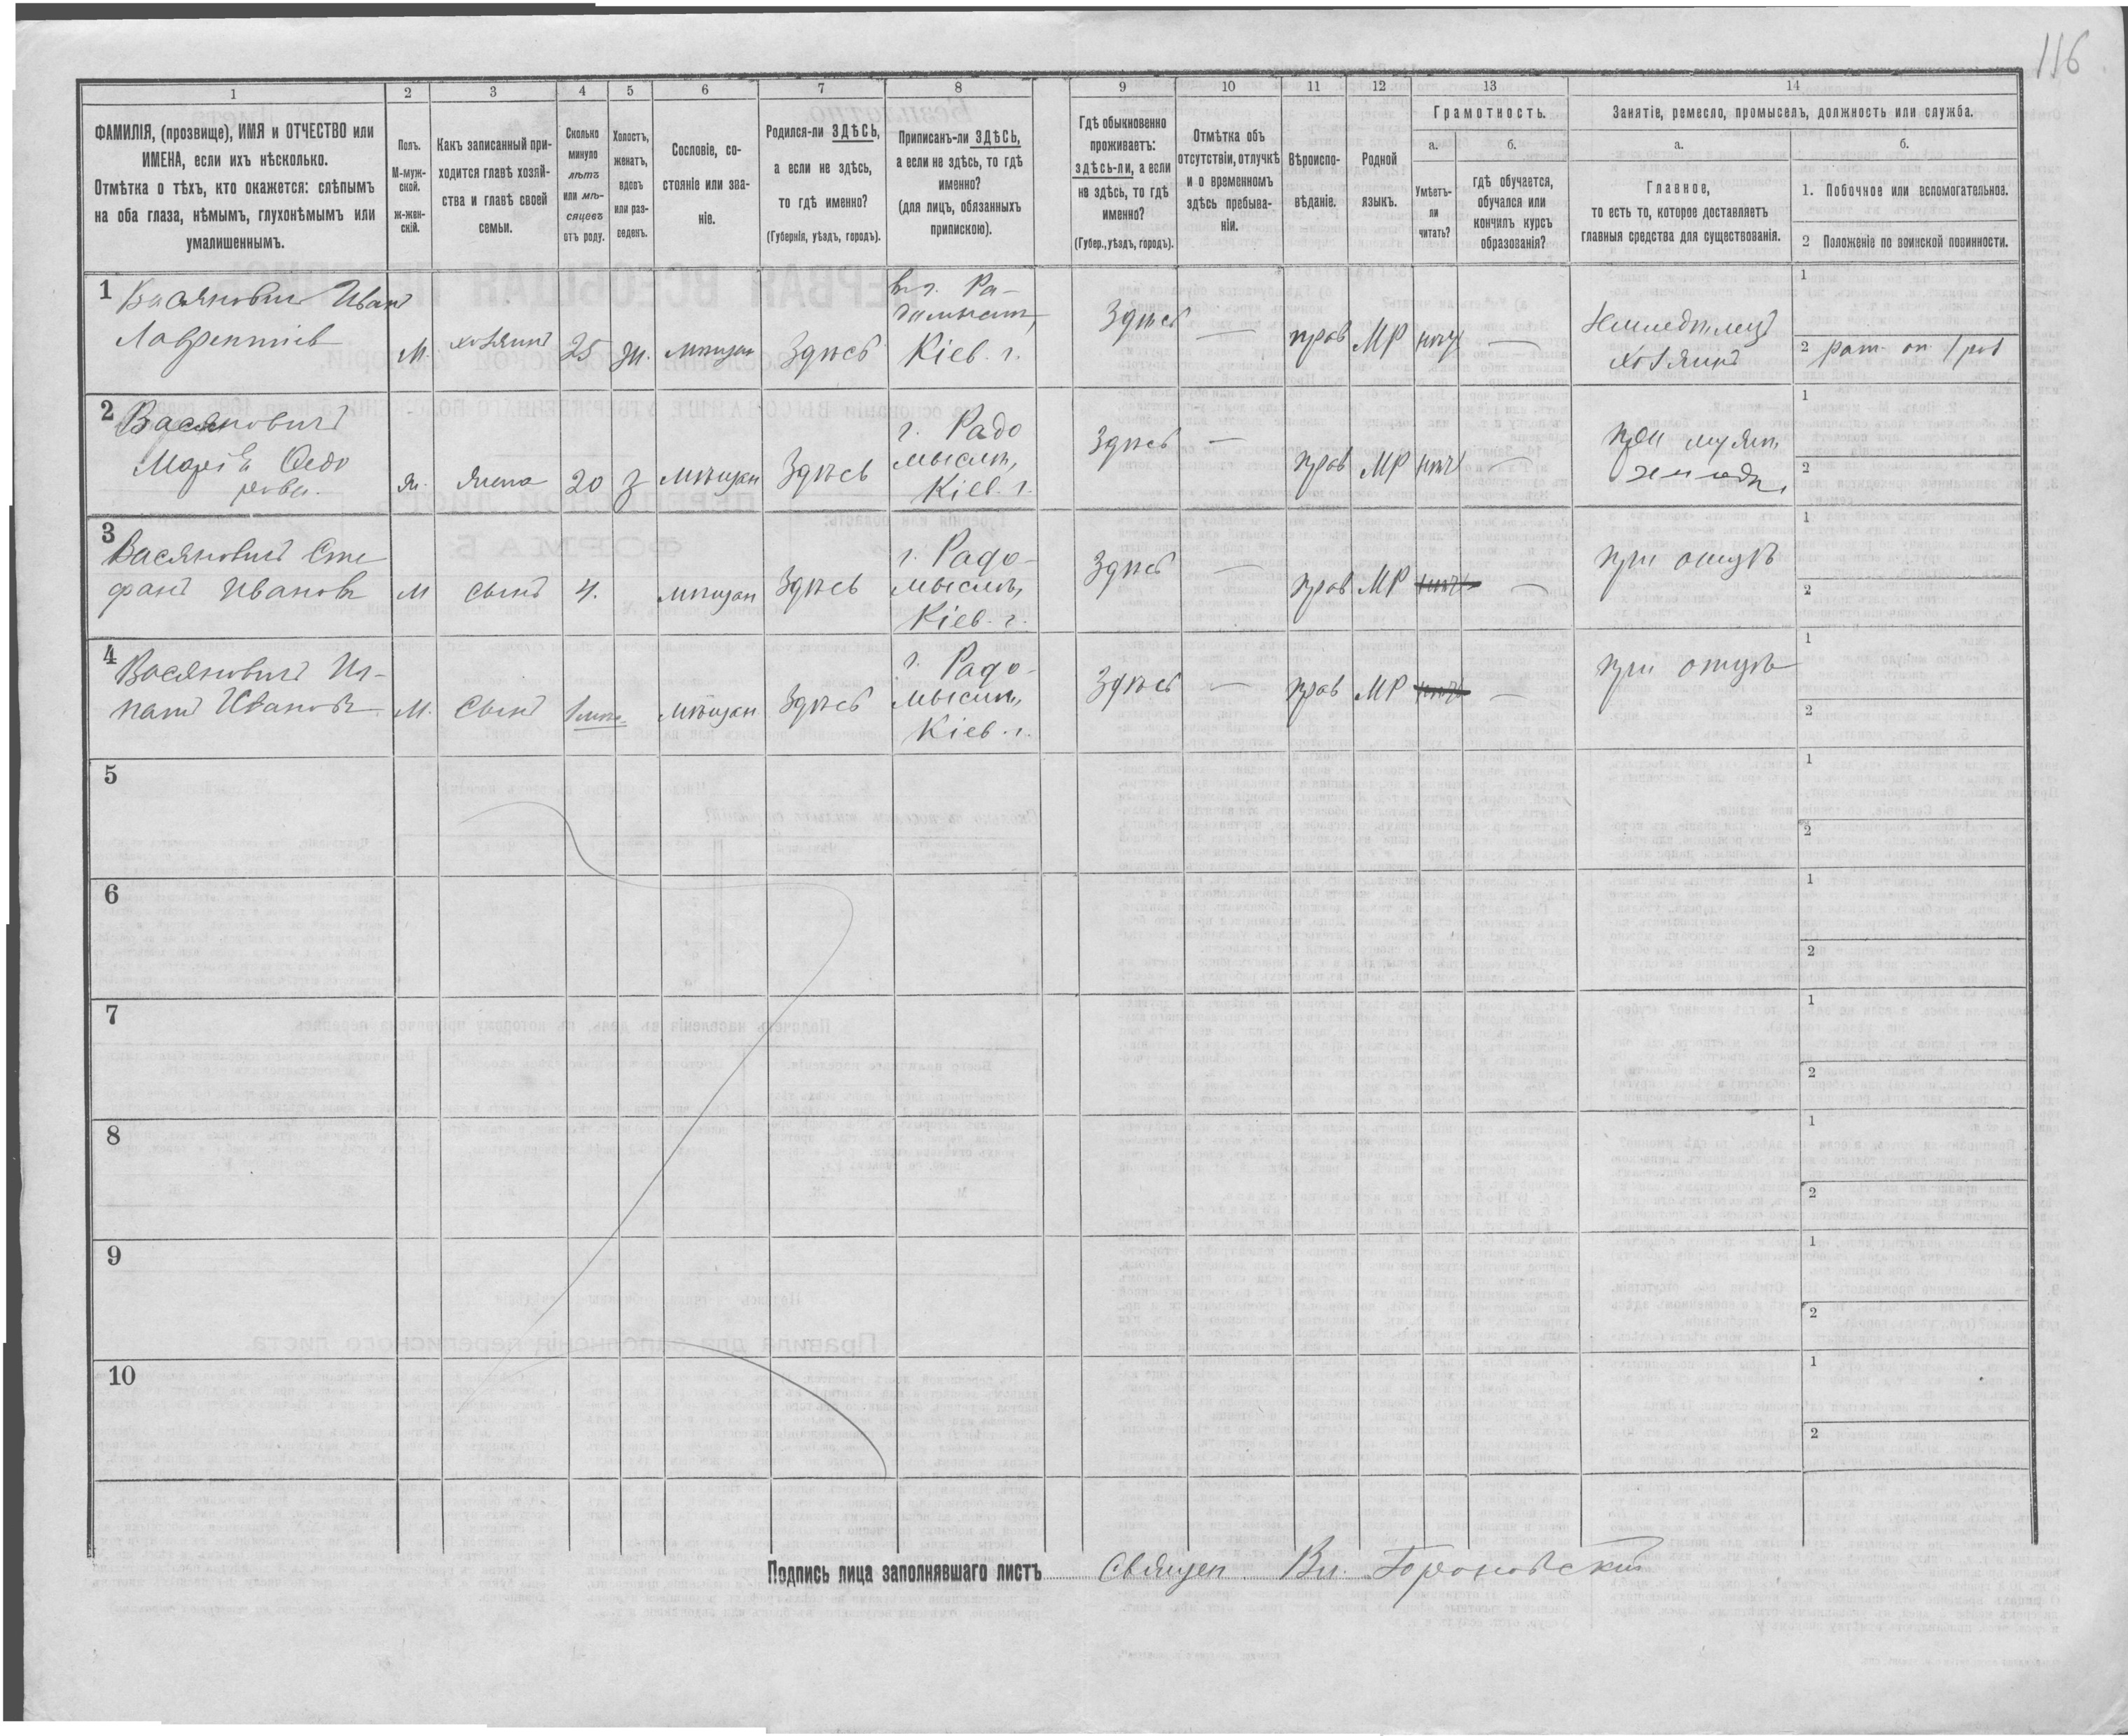 116
1 2 3 4 5 6 7 8 9 10 11 12 13 14
ФАМИЛІЯ, (прозвище), ИМЯ и ОТЧЕСТВО или
ИМЕНА, если ихъ нѣсколько.
Отмѣтка о тѣхъ, кто окажется: слѣпымъ
на оба глаза, нѣмымъ, глухонѣмымъ или
умалишеннымъ.
Полъ.
М-муж-
ской.
ж-жен-
скій.
Какъ записанный при-
ходится главѣ хозяй-
ства и главѣ своей
семьи.
Сколько
минуло
лѣтъ
или мѣ-
сяцевъ
отъ роду.
Холостъ,
женатъ,
вдовъ
или раз-
веденъ.
Сословіе, со-
стояніе или зва-
ніе.
Родился-ли ЗДѢСЬ,
а если не здѣсь,
то гдѣ именно?
(Губернія, уѣздъ, городъ).
Приписанъ-ли ЗДѢСЬ,
а если не здѣсь, то гдѣ
именно?
(для лицъ, обязанныхъ
припискою).
Гдѣ обыкновенно
проживаетъ:
здѣсь-ли, а если
не здѣсь, то гдѣ
именно?
(Губер., уѣздъ, городъ).
Отмѣтка объ
отсутствіи, отлучкѣ
и о временномъ
здѣсь пребыва-
ніи.
Вѣроиспо-
вѣданіе.
Родной
языкъ.
Грамотность.
а.
Умѣетъ-
ли
читать?
б.
гдѣ обучается,
обучался или
кончилъ курсъ
образованія?
Занятіе, ремесло, промыселъ, должность или служба.
а.
Главное,
то есть то, которое доставляетъ
главныя средства для существованія.
б.
1. Побочное или вспомогательное.
2 Положеніе по воинской повинности.
1 Васяновичъ Иванъ
Лаврентіев
М. хозяинъ 25 ж. мѣщан Здѣсь
Кіев. г.
Здѣсь — прав МР нѣтъ —
хозяинъ
1
2
2 Васяновичъ
Марія Федо
рова.
ж. жена 20 з мѣщан Здѣсь
г. Радо
мысль,
Кіев. г.
Здѣсь — прав МР нѣтъ —
при мужѣ
1
2
3 Васяновичъ Сте
фанъ Иванов
М сынъ 4. мѣщан Здѣсь
г. Радо-
мысль,
Кіев. г.
Здѣсь — прав МР нѣтъ —
при отцѣ
1
2
4 Васяновичъ Иг-
натъ Иванов
М. Сынъ мѣщан Здѣсь
г. Радо-
мысль,
Кіев. г.
Здѣсь — прав МР нѣтъ —
при отцѣ
1
2
5 1
2
6 1
2
7 1
2
8 1
2
9 1
2
10 1
2
Подпись лица заполнявшаго листъ Священ Вл.